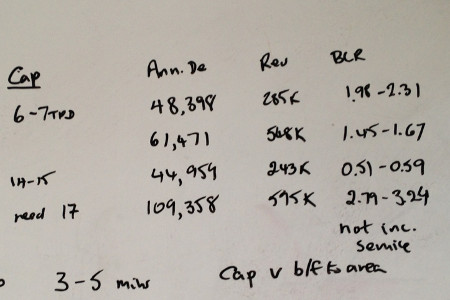 Cap Ann. De Rev BCR
6-7TPD 48,398 285K 1.98-2.31
61,471 568K 1.45-1.67
14-15 44,954 243K 0.51-0.59
need 17 109,358 595K 2.79-3.24
not inc.
service
3-5 mins Cap v b/f to area